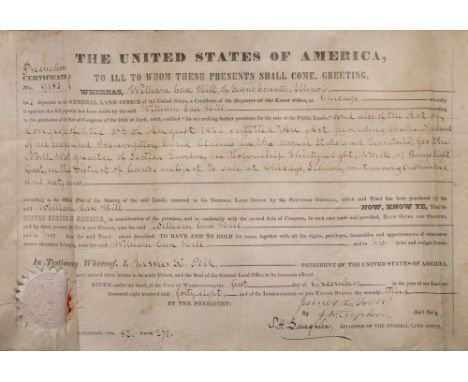 Preemption
CERTIFICATE
No. 9183
THE UNITED STATES OF AMERICA,
TO ALL TO WHOM THESE PRESENTS SHALL COME, GREETING.
WHEREAS, William Case Hill, of Kane County, Illinois
ha deposited in the GENERAL LAND OFFICE of the United States, a Certificate of the Register of the Land Office, at Chicago whereby
it appears that full payment has been made by the said William Case Hill according
to the provisions of the Act of Congress of the 24th of April, 1820, entitled "An act making further provision for the sale of the Public Lands," and also the Act of
Congress of the 3rd of August 1846, entitled "An Act providing for the
of suspended Preemption Land Claims in the several States and Territories", for the
North quarter of Section Twelve, in Township Thirty eight, North, of Range Eight
East, in the District of Lands subject to sale at Chicago, Illinois, containing One hundred
and
according to the official Plat of the Survey of the said Lands, returned to the GENERAL LAND OFFICE by the SURVEYOR GENERAL, which said Tract has been purchased by the
said William Case Hill NOW, KNOW YE, That the
UNITED STATES OF AMERICA, in consideration of the premises, and in conformity with the several Acts of Congress, in such case made and provided, HAVE GIVEN AND GRANTED,
and by these presents Do GIVE AND GRANT, unto the said William Case Hill
and to his heirs, the said Tract above described: TO HAVE AND TO HOLD the same, together with all the rights, privileges, immunities and appurtenances of whatsoever
nature thereunto belonging, unto the said William Case Hill and to his heirs and assigns forever.
In Testimony Whereof, I, James K. Polk PRESIDENT OF THE UNITED STATES OF AMERICA,
have caused these letters to be made Patent, and the Seal of the General Land Office to be hereunto affixed.
GIVEN under my hand, at the CITY OF WASHINGTON, the first day of December in the year of our Lord one
thousand eight hundred and forty eight, and of the INDEPENDENCE OF THE UNITED STATES the seventy third
BY THE PRESIDENT: James K. Polk
By Sec'y.
S. H. Laughlin RECORDER OF THE GENERAL LAND OFFICE.
RECORDED, VOL. 52, PAGE 272.